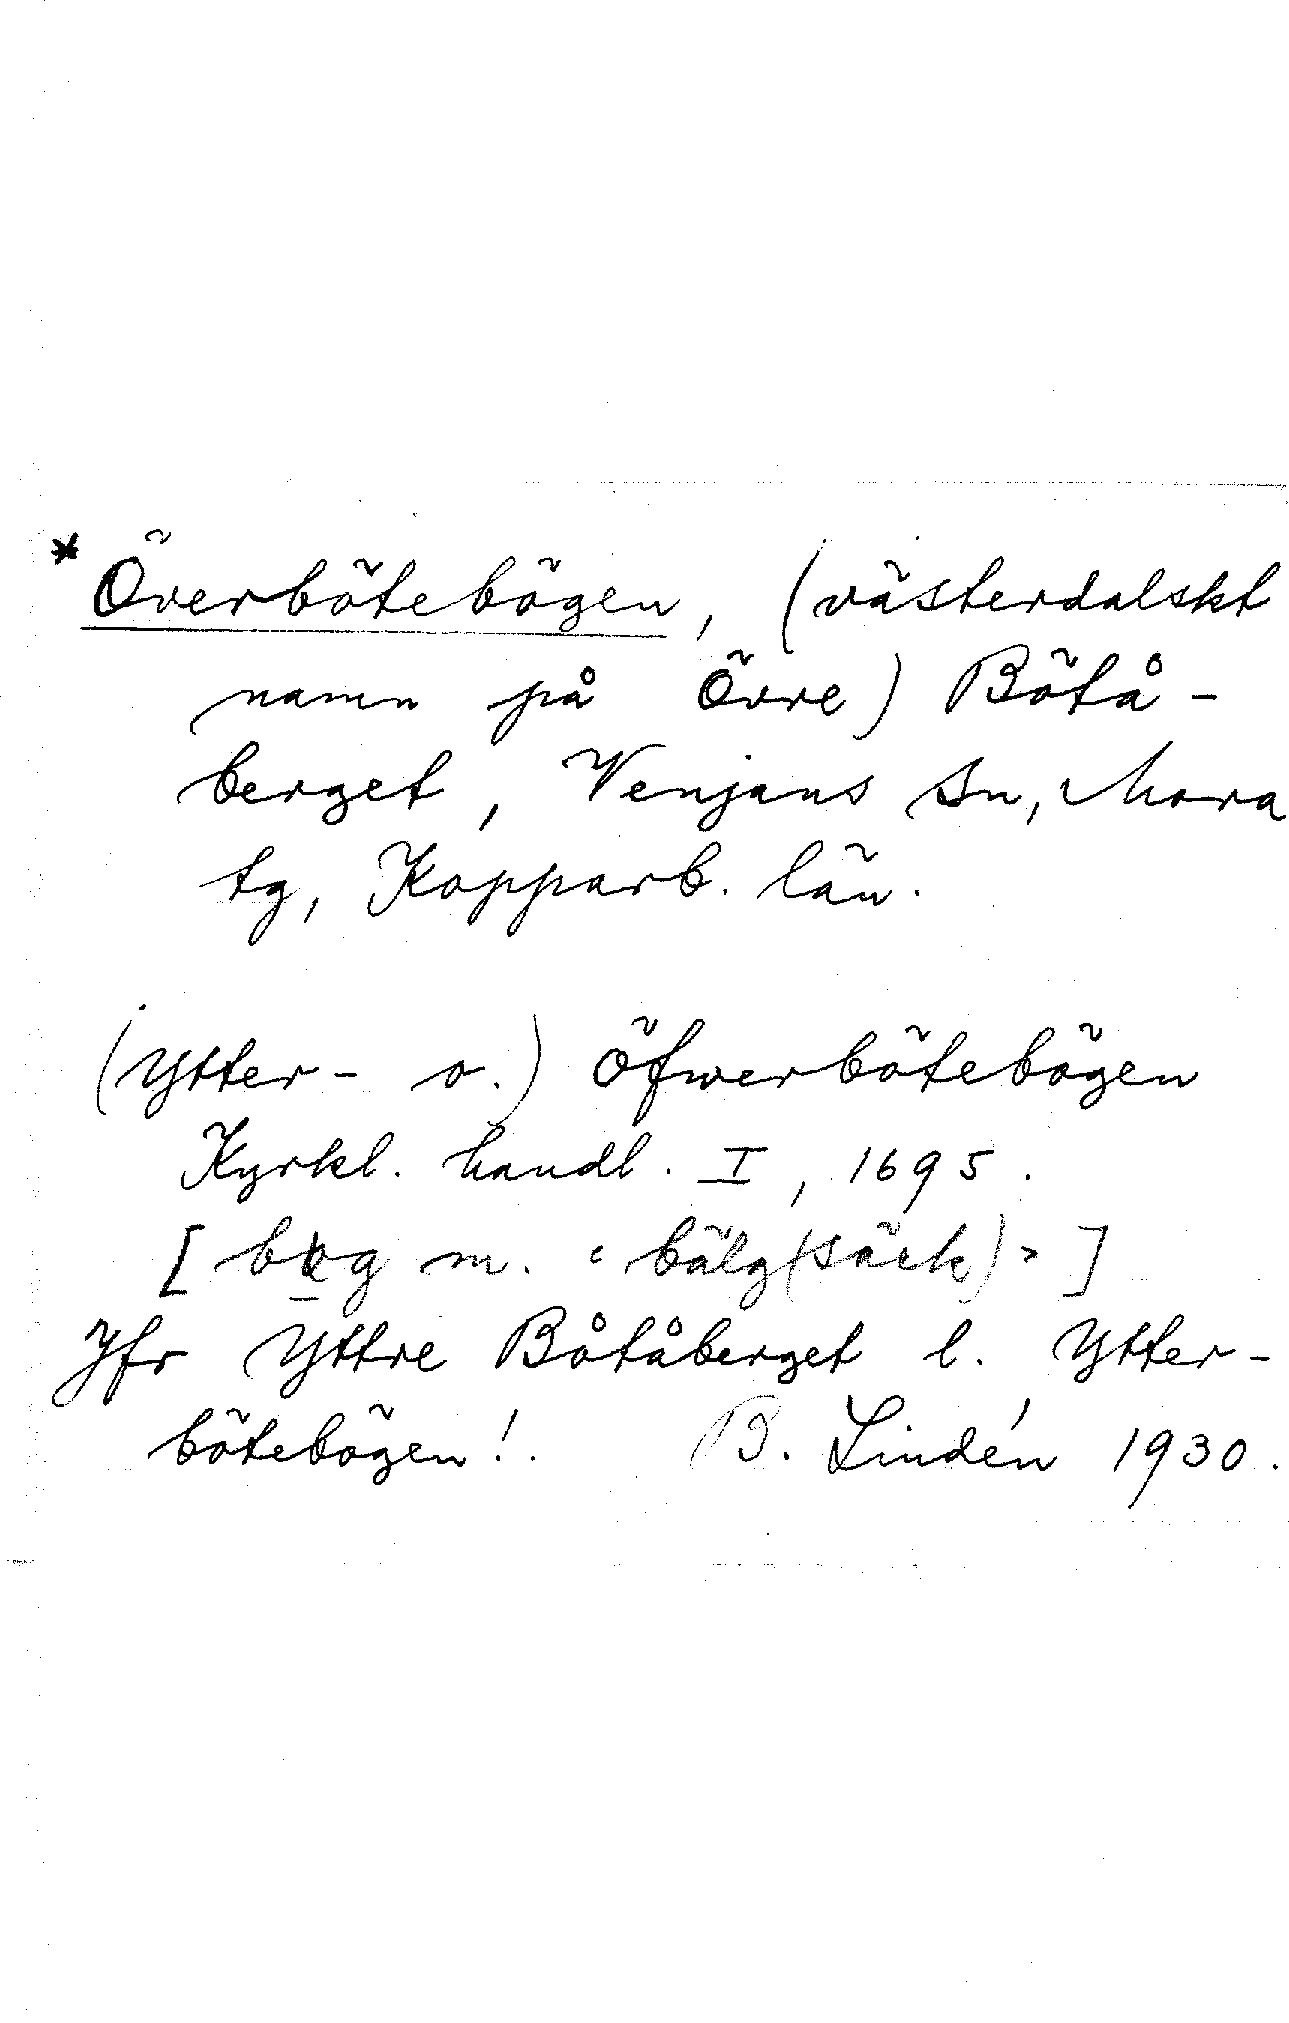 *Överbötebögen, (västerdalskt
namn på Övre) Bötå-
berget, Venjans sn, Mora
tg, Kopparb. län.
(Ytter- o.) Öfwerbötebögen
Kyrkl. handl. I, 1695.
[ m. "bälg(säck)" ]
Jfr Yttre Båtåberget l. Ytter-
bötebögen!. B. Lindén 1930.